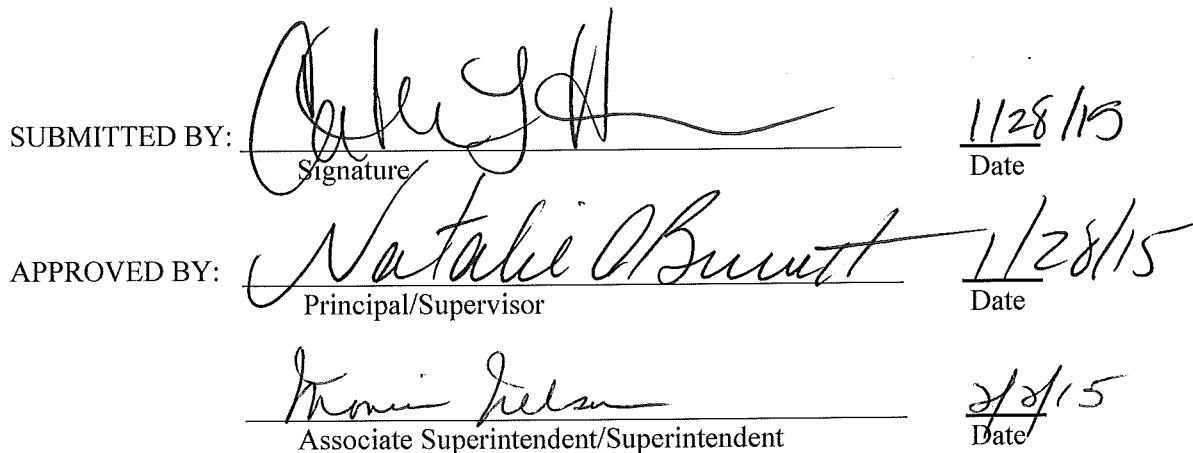 SUBMITTED BY: 1/28/15
Signature Date
APPROVED BY: Natalie 1/28/15
Principal/Supervisor Date
Nelson 2/2/15
Associate Superintendent/Superintendent Date